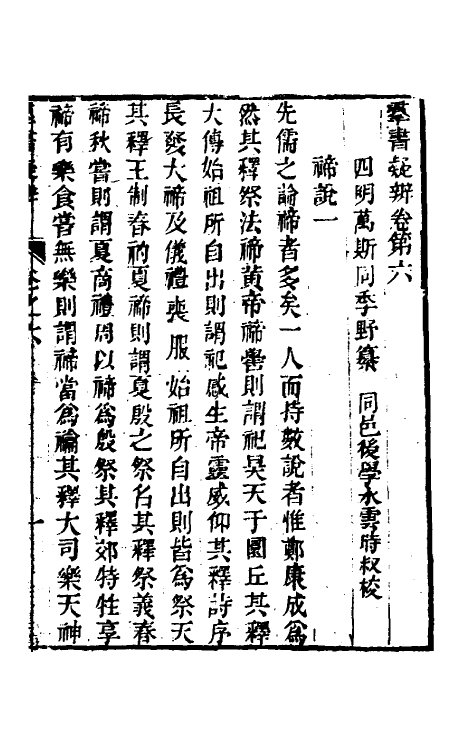 羣書疑辨卷第六
四明萬斯同季野纂 同邑後學水雲時叔校
禘說一
先儒之論禘者多矣一人而持數說者惟鄭康成爲
然其釋祭法禘黃帝禘嚳則謂祀昊天于圜丘其釋
大傳始祖所自出則謂祀感生帝靈威仰其釋詩序
長發大禘及儀禮喪服始祖所自出則皆爲祭天
其釋王制春礿夏禘則謂夏殷之祭名其釋祭義春
禘秋嘗則謂夏商禮周以禘爲殷祭其釋郊特牲享
禘有樂食嘗無樂則謂禘當爲禴其釋大司樂天神